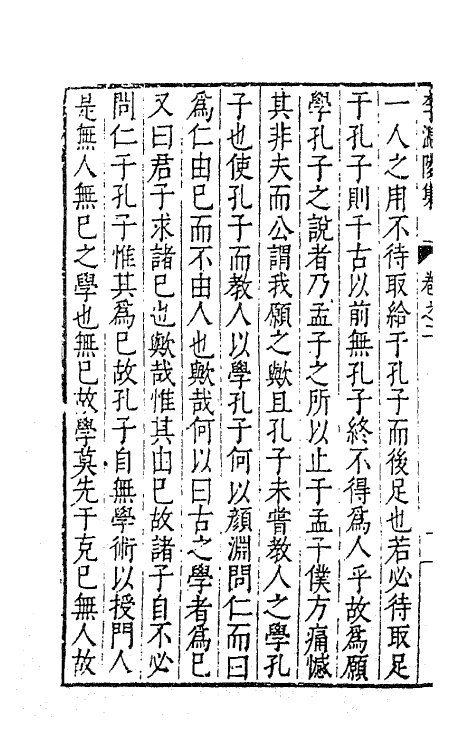 李溫陵集 卷之二
一人之用不待取給于孔子而後足也若必待取足
于孔子則千古以前無孔子終不得爲人乎故爲願
學孔子之說者乃孟子之所以止于孟子僕方痛憾
其非夫而公謂我願之歟且孔子未嘗教人之學孔
子也使孔子而教人以學孔子何以顏淵問仁而曰
爲仁由巳而不由人也歟哉何以曰古之學者爲巳
又曰君子求諸巳也歟哉惟其由巳故諸子自不必
問仁于孔子惟其爲巳故孔子自無學術以授門人
是無人無巳之學也無巳故學莫先于克巳無人故